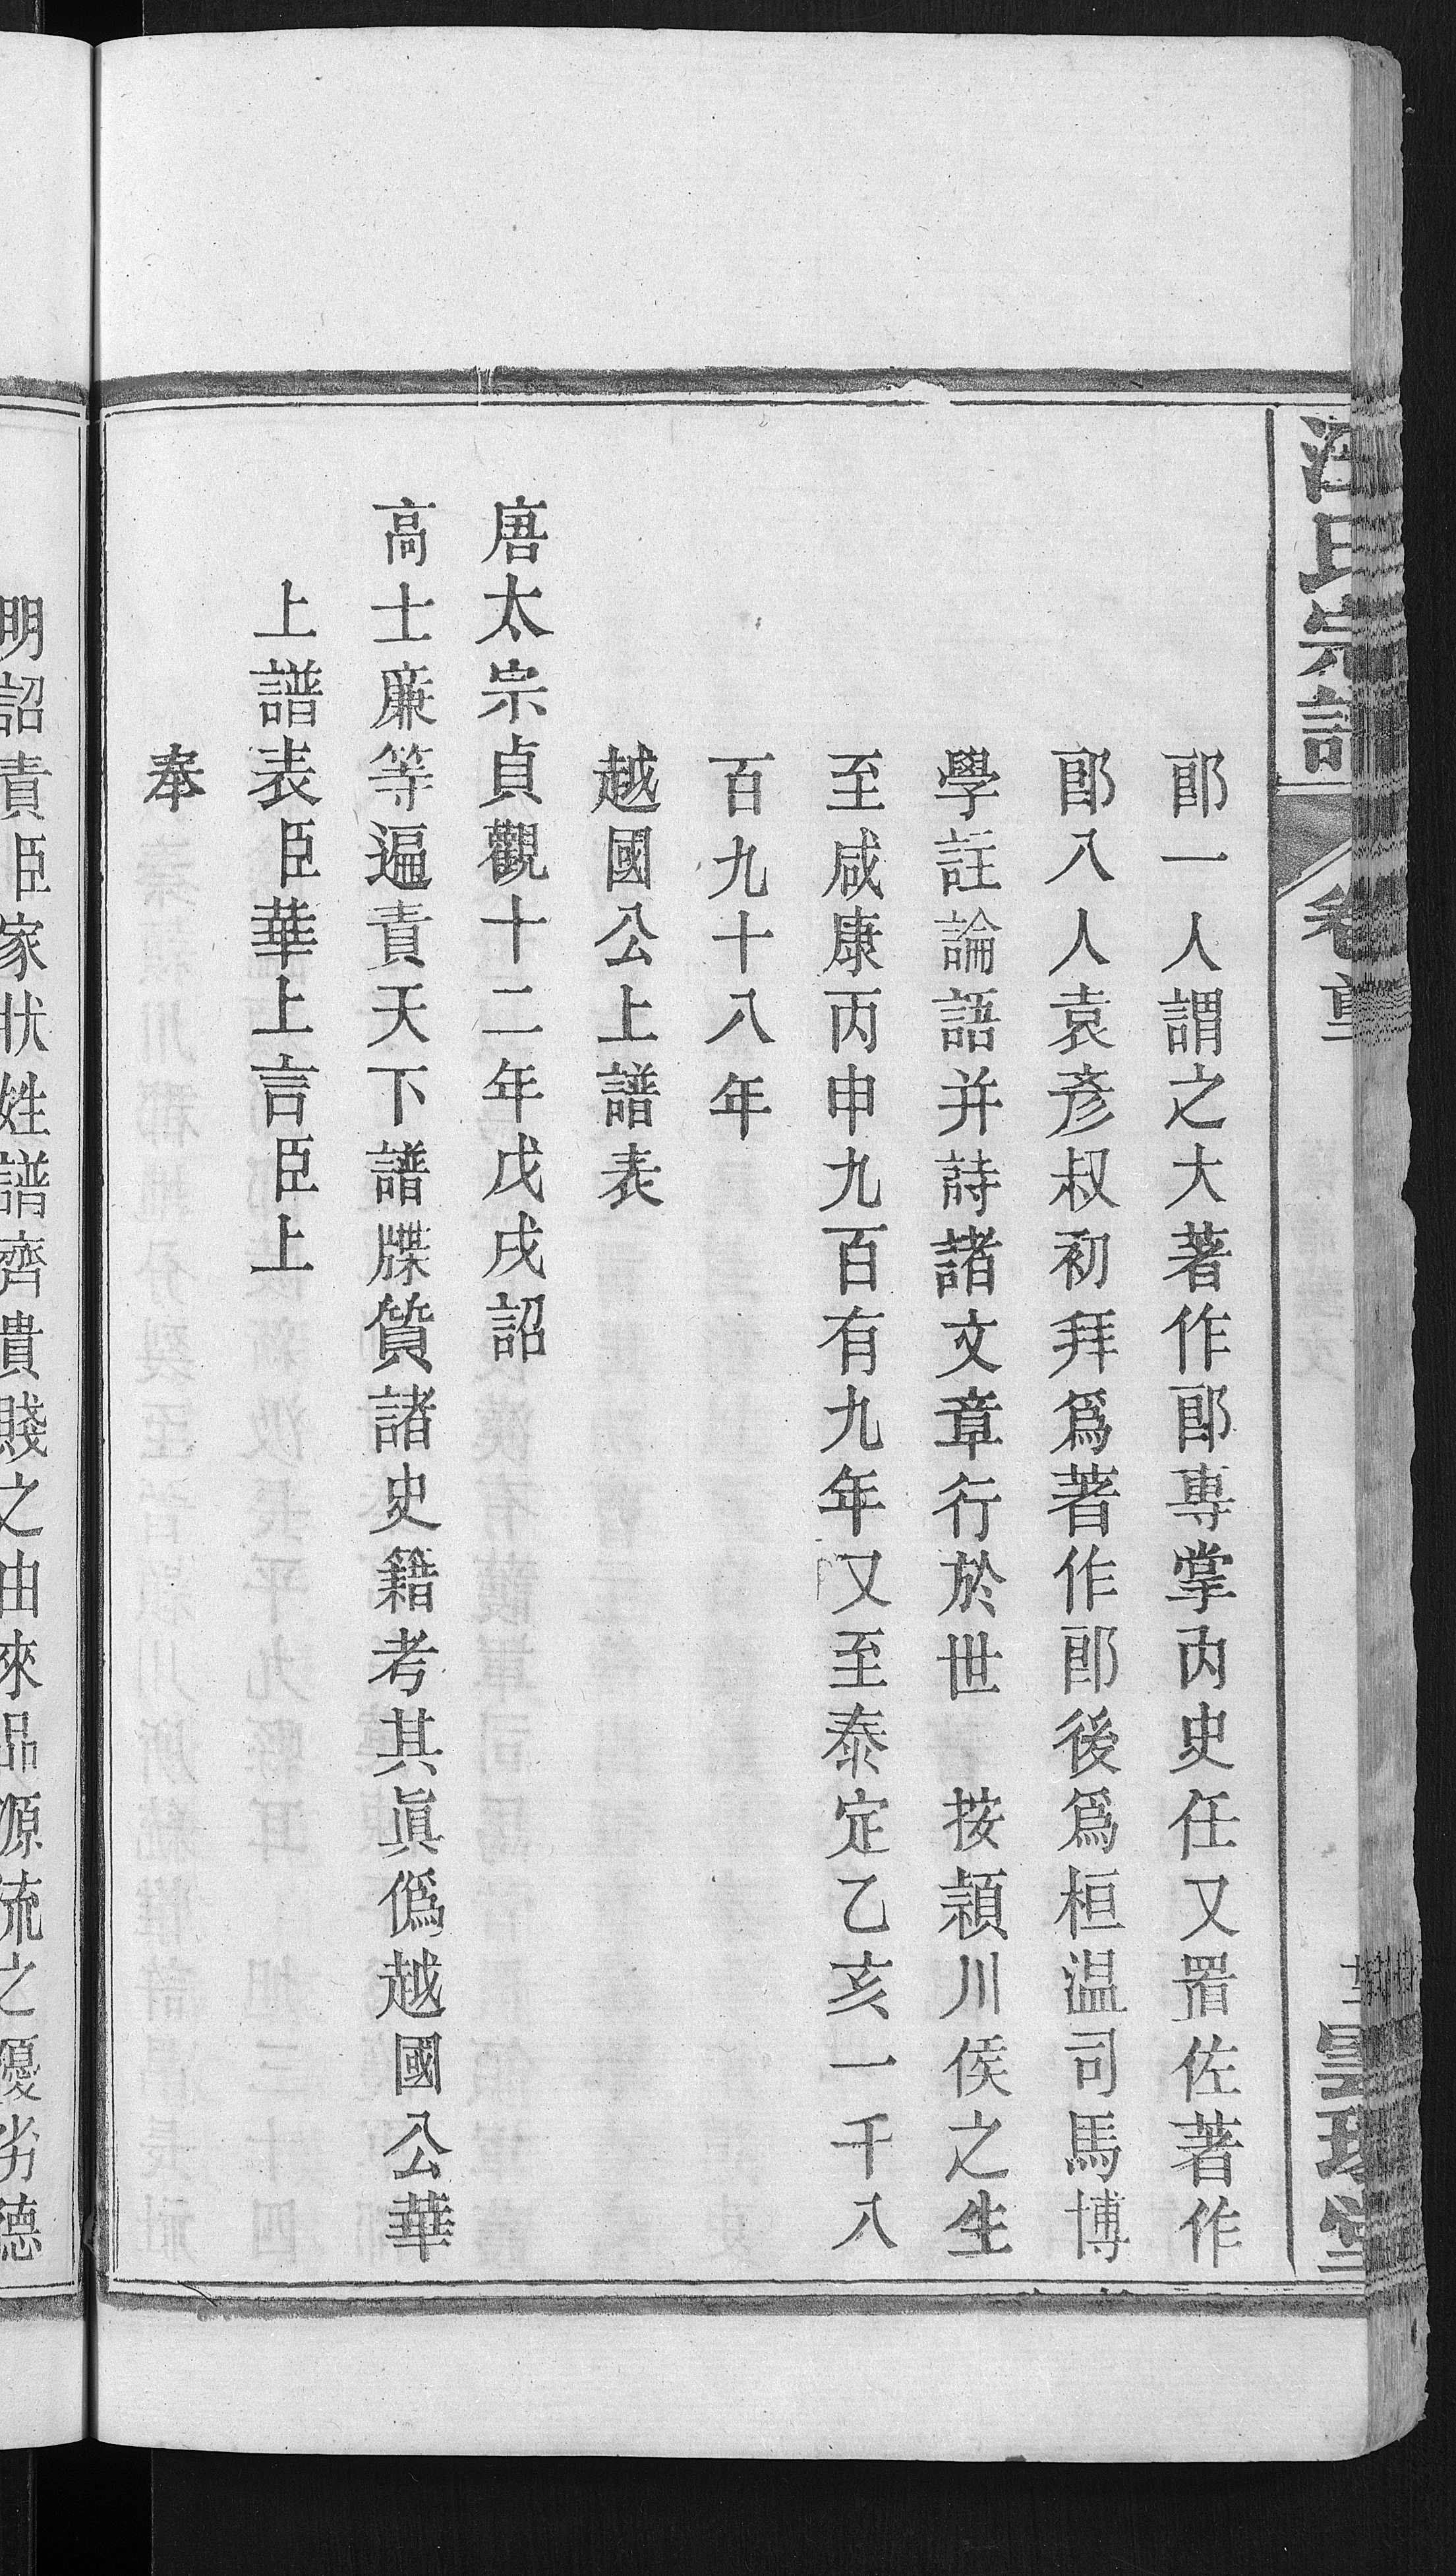 汪氏宗譜
卷首
郎一人謂之大著作郎專掌內史任又置佐著作
郎八人袁彥叔初拜爲著作郎後爲桓温司馬博
學註論語并詩諸文章行於世　按潁川侯之生
至咸康丙申九百有九年又至泰定乙亥一千八
百九十八年
越國公上譜表
唐太宗貞觀十二年戊戌詔
高士廉等遍責天下譜牒質諸史籍考其眞僞越國公華
上譜表臣華上言臣上
奉
明詔責臣家狀姓譜齊貴賤之由來品源流之優劣德